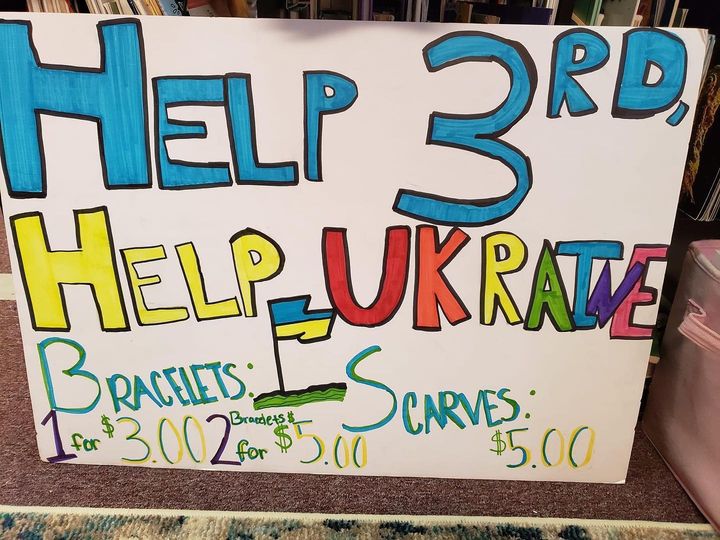 HELP 3RD,
HELP UKRAINE
BRACELETS: SCARVES:
1 for $3.00 2 Bracelets for $5.00 $5.00